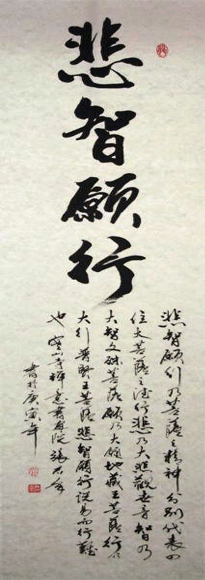 悲智願行
悲智願行乃菩薩之精神分别代表四
位大菩薩之德行悲乃大悲觀世音智乃
大智文殊菩薩願乃大願地藏王菩薩行乃
大行普賢王菩薩悲智願行说易而行難
也 寺禅意書画院張
書於庚寅年